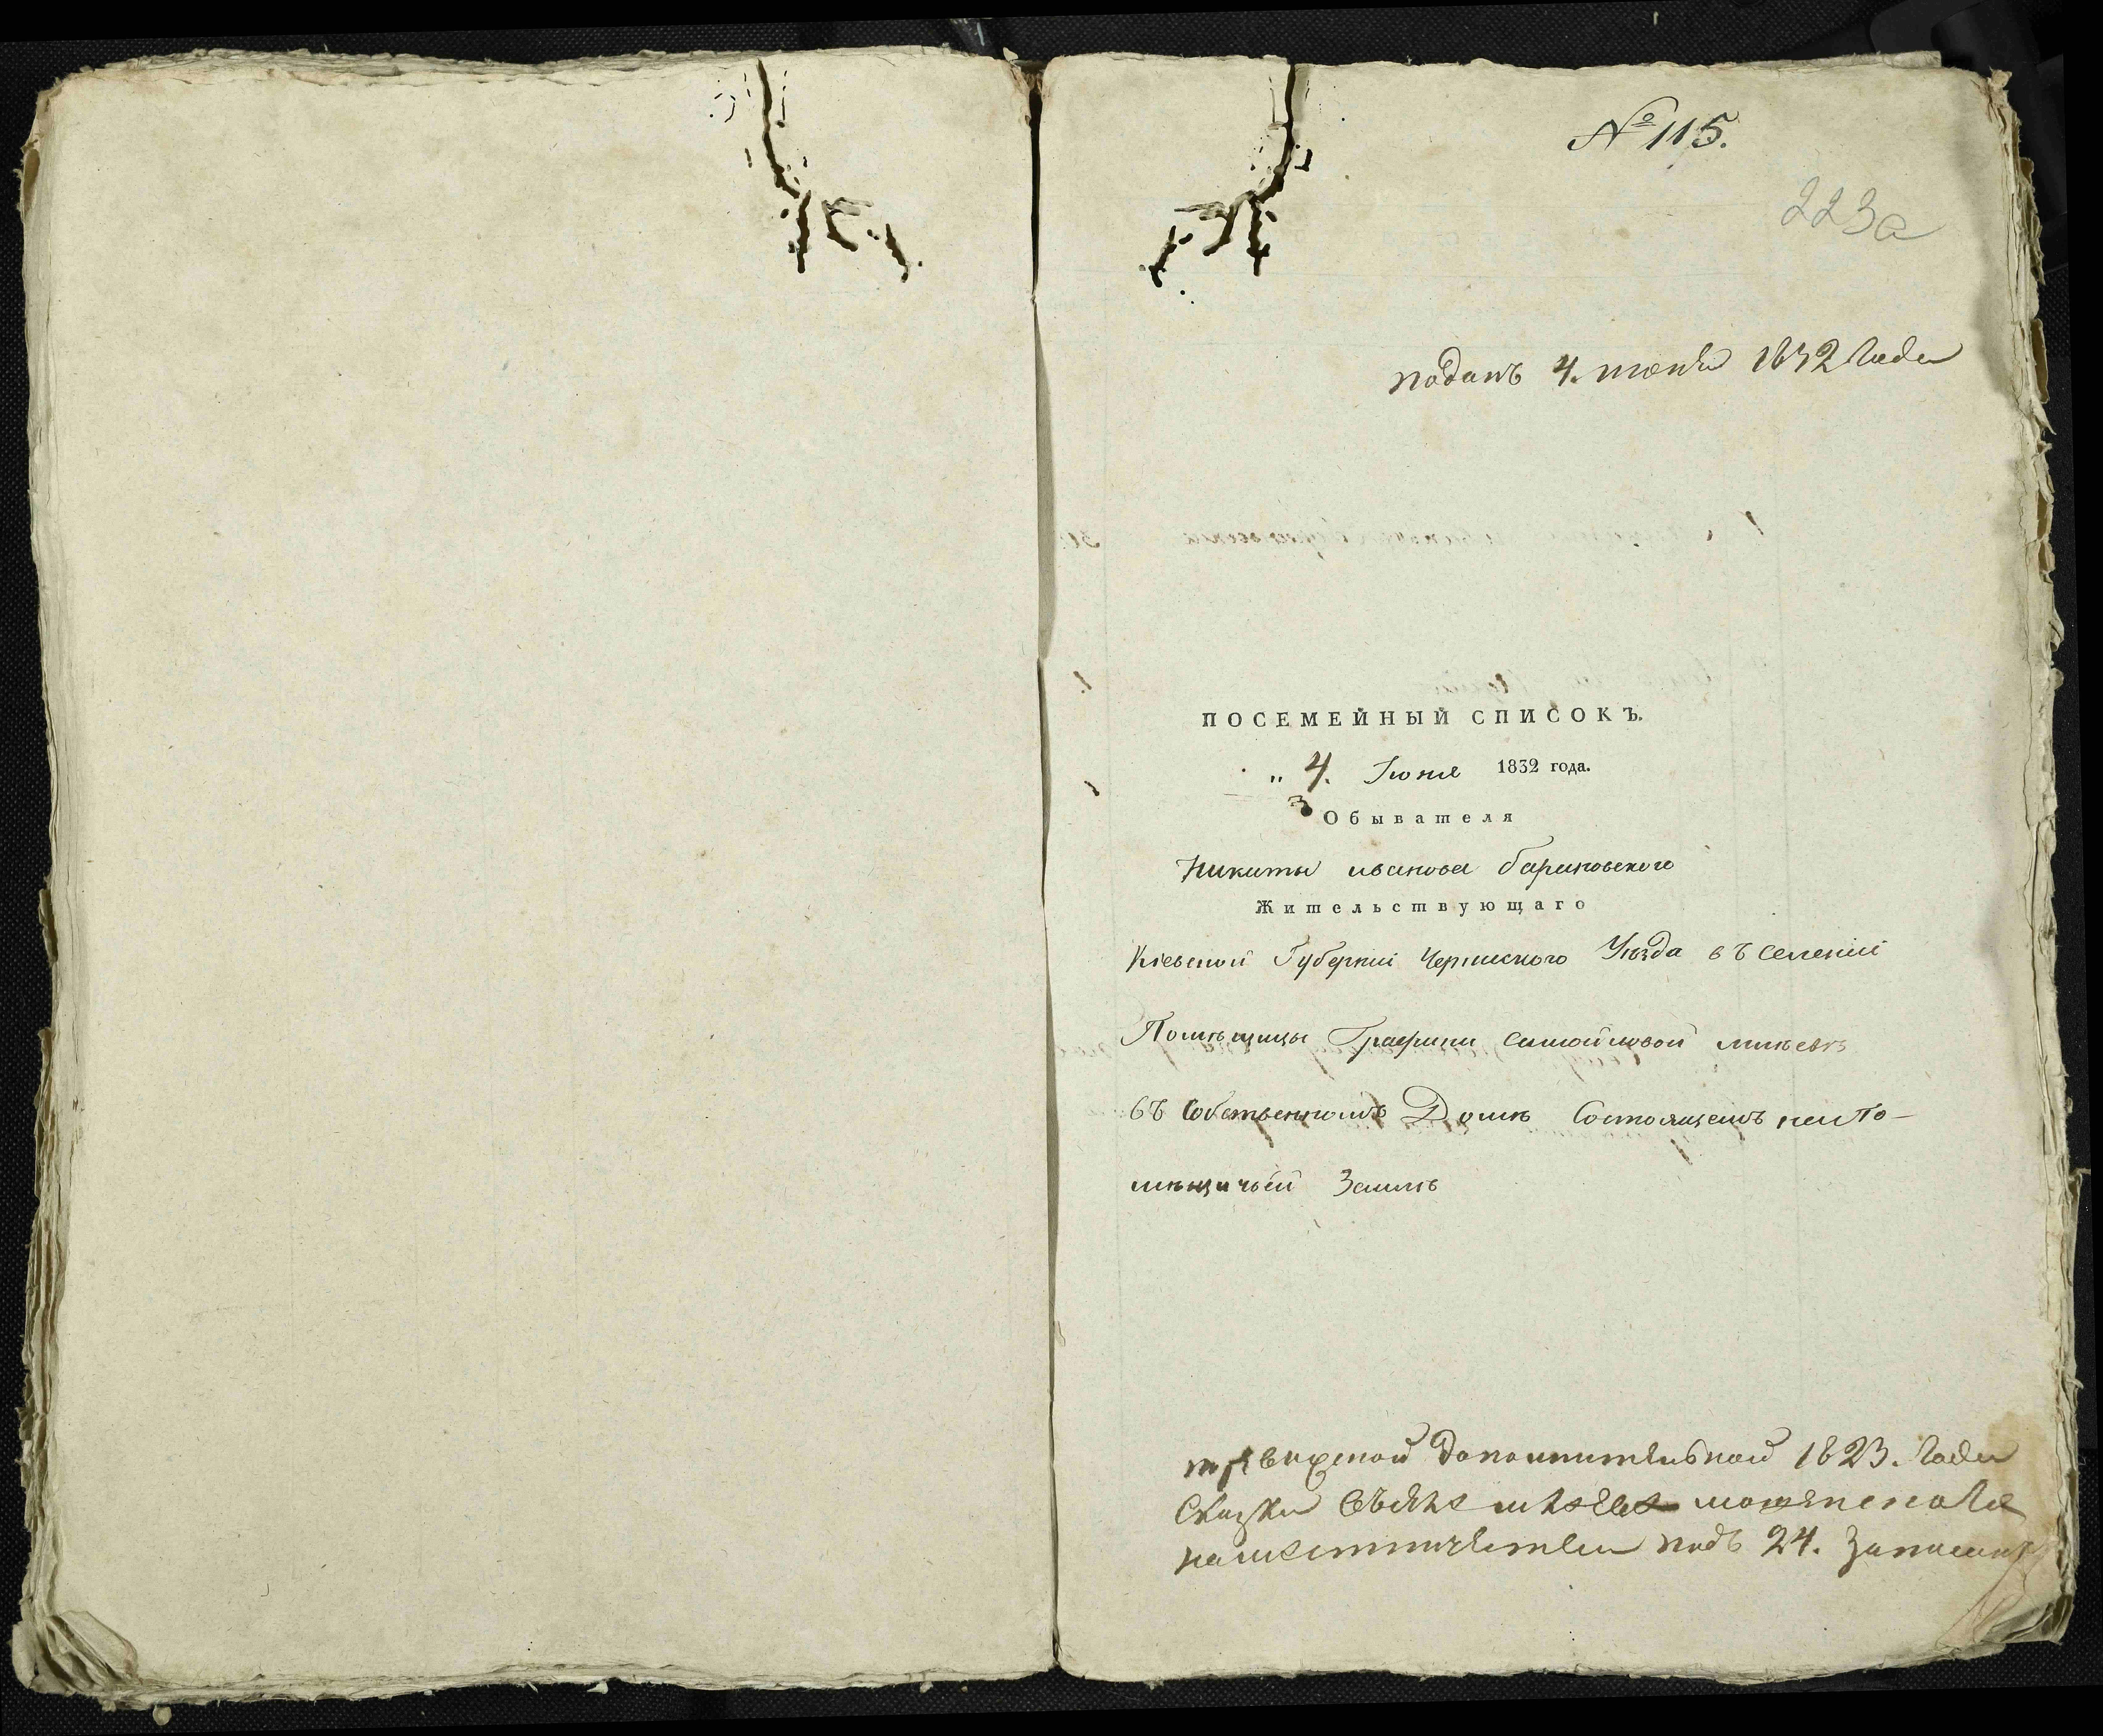 № 115.
223а
поданъ 4. июня 1832 года
ПОСЕМЕЙНЫЙ СПИСОКЪ.
„ 4. Іюня 1832 года.
3
Обывателя
Никиты иванова барановского
Жительствующаго
Кіевской Губерніи Черкаского Уѣзда въ Селеніи
Помѣщицы Графини Самойловой
въ Собственномъ Домѣ Состоящемъ на По-
мѣщичьей Землѣ
Дополнительной 1823. года
Сказки
подъ 24. Записанъ